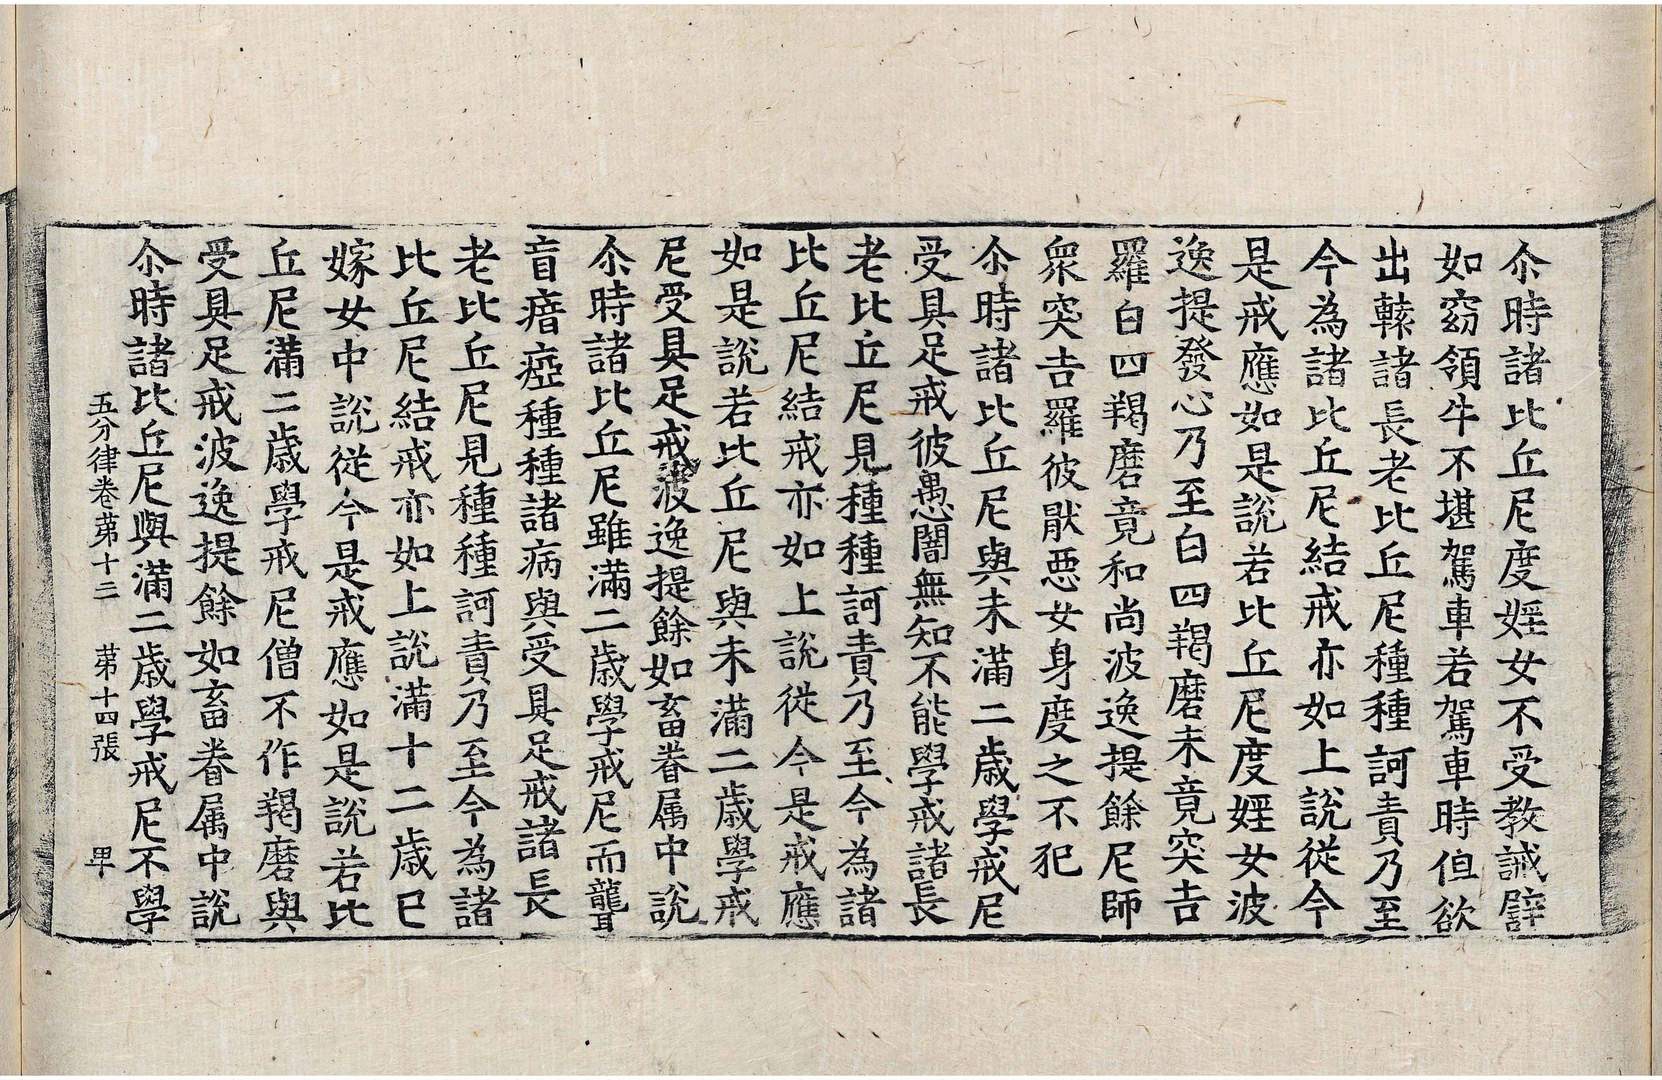 尒時諸比丘尼度婬女不受教誡譬
如窈領牛不堪駕車若駕車時但欲
出轅諸長老比丘尼種種訶責乃至
今為諸比丘尼結戒亦如上說從今
是戒應如是說若比丘尼度婬女波
逸提發心乃至白四羯磨未竟突吉
羅白四羯磨竟和尚波逸提餘尼師
衆突吉羅彼厭惡女身度之不犯
尒時諸比丘尼與未滿二歲學戒尼
受具足戒彼愚闇無知不能學戒諸長
老比丘尼見種種訶責乃至今為諸
比丘尼結戒亦如上說從今是戒應
如是說若比丘尼與未滿二歲學戒
尼受具足戒波逸提餘如畜眷属中說
尒時諸比丘尼雖滿二歲學戒尼而聾
盲瘖瘂種種諸病與受具足戒諸長
老比丘尼見種種訶責乃至今為諸
比丘尼結戒亦如上說滿十二歲已
嫁女中說從今是戒應如是說若比
丘尼滿二歲學戒尼僧不作羯磨與
受具足戒波逸提餘如畜眷属中說
尒時諸比丘尼與滿二歲學戒尼不學
五分律卷苐十三 苐十四張